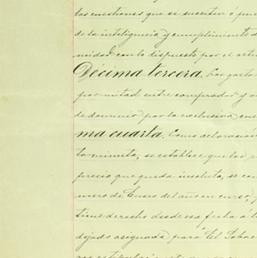 las cuestiones que se susciten ó pue
de la inteligencia y cumplimiento d
midad con lo dispuesto por el artí
Décima tercera. Los gastos
por mitad entre comprador y v
de dominio por la exclusion en
ma cuarta. Como aclaración
ta minuta, se establece que los
precio que queda insoluto, se co
mero de Enero del año en curso, y
tiene derecho desde esa fecha á l
dejado asignada para "El Taba